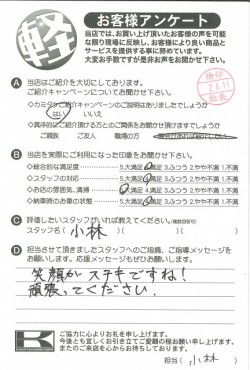 軽
お客様アンケート
当店では、お買い上げ頂いたお客様の声を可能
な限り現場に反映し、お客様により良い商品と
サービスを提供する事に努めています。
大変お手数ですが是非お声をお聞かせ下さい。
検印
2.5.11
社長
A 当店はご紹介を大切にしております。
ご紹介キャンペーンについてお聞かせ下さい。
◇カミタからご紹介キャンペーンのご説明はありましたでしょうか
はい いいえ
◇具体的にご紹介頂ける方とのご関係をお聞かせ頂けますでしょうか
ご親族 ご友人 職場の方
B 当店を実際にご利用になった印象をお聞かせ下さい。
◇総合的な満足度 5.大満足 4.満足 3.ふつう 2.やや不満 1.不満
◇スタッフの対応 5.大満足 4.満足 3.ふつう 2.やや不満 1.不満
◇お店の雰囲気、清掃 5.大満足 4.満足 3.ふつう 2.やや不満 1.不満
◇納車時のお車の状態 5.大満足 4.満足 3.ふつう 2.やや不満 1.不満
C 評価したいスタッフがいれば教えてください。
スタッフ名( 小林 ) スタッフ名( )
D 担当させて頂きましたスタッフへのご指摘、ご指導メッセージを
お願いします。応援メッセージもぜひお願いします。
笑顔がステキですね!
頑張ってください.
K
ご協力に心よりお礼を申し上げます。
今後とも宜しくお引き立てご愛顧の程お願い申し上げます。
またのご来店を心からお待ちしております。
担当( 小林 )